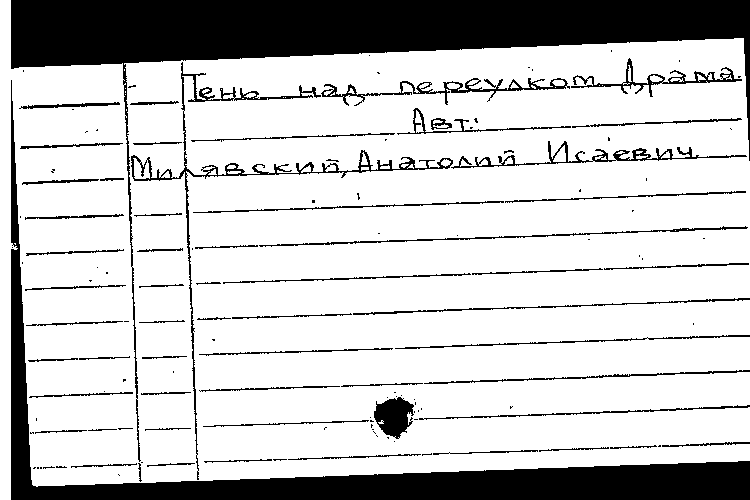 Тень над переулком. Драма.
Авт.:
Милявский, Анатолий Исаевич